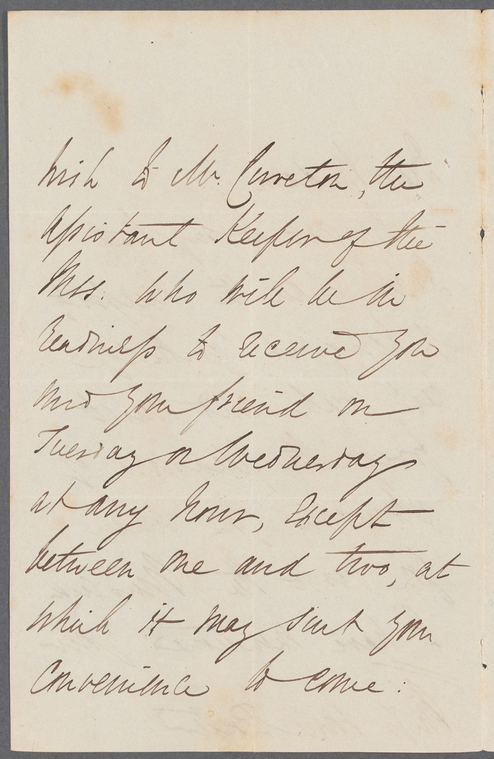 wish to Mr. Cureton, the
Assistant Keeper of the
Mss. who will be in
readiness to receive you
and your friend on
Tuesday or Wednesday
at any hour, except
between one and two, at
which it may suit your
convenience to come: